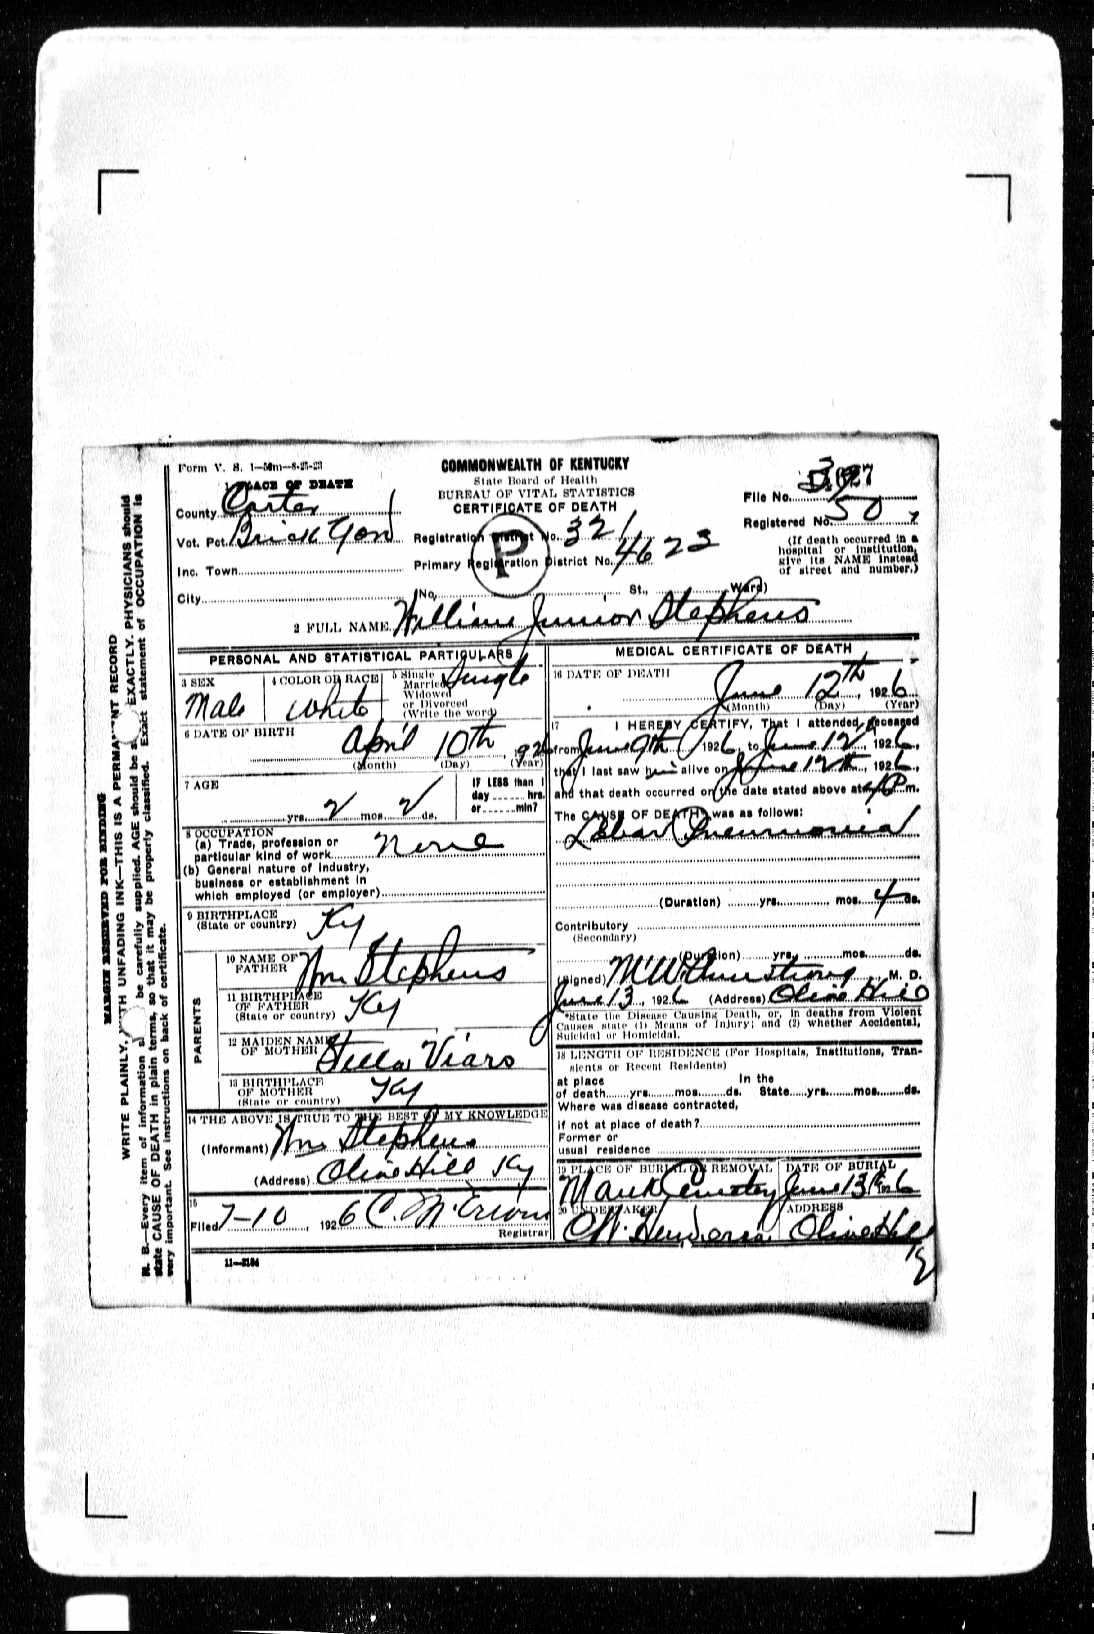 Form V. S. 1—50m—8-25-23
COMMONWEALTH OF KENTUCKY
State Board of Health
BUREAU OF VITAL STATISTICS
CERTIFICATE OF DEATH
PLACE OF DEATH
County Carter
Vot. Pct. Brick Yard
Inc. Town
City
Registration District No. 321
Primary Registration District No. 4623
P
File No.
Registered No. 50
(If death occurred in a
hospital or institution,
give its NAME instead
of street and number.)
(No. St., Ward)
2 FULL NAME William Junior Stephens
PERSONAL AND STATISTICAL PARTICULARS
3 SEX
Male
4 COLOR OR RACE
White
5 Single
Married
Widowed
or Divorced
(Write the word)
Single
6 DATE OF BIRTH
April 10th, 192
(Month) (Day) (Year)
7 AGE
yrs. 2 mos. 2 ds.
IF LESS than 1
day hrs.
or min?
8 OCCUPATION
(a) Trade, profession or
particular kind of work None
(b) General nature of industry,
business or establishment in
which employed (or employer)
9 BIRTHPLACE
(State or country) Ky
PARENTS
10 NAME OF
FATHER Wm Stephens
11 BIRTHPLACE
OF FATHER
(State or country) Ky
12 MAIDEN NAME
OF MOTHER Stella Viars
13 BIRTHPLACE
OF MOTHER
(State or country) Ky
14 THE ABOVE IS TRUE TO THE BEST OF MY KNOWLEDGE
(Informant) Wm Stephens
(Address) Olive Hill Ky
15
Filed 7-10, 1926
Registrar
11—3184
MEDICAL CERTIFICATE OF DEATH
16 DATE OF DEATH
June 12th, 1926
(Month) (Day) (Year)
17 I HEREBY CERTIFY, That I attended deceased
from June 9th, 1926, to June 12th, 1926,
that I last saw him alive on June 12th, 1926,
and that death occurred on the date stated above at P m.
The CAUSE OF DEATH was as follows:
Lobar Pneumonia
(Duration) yrs. mos. 4 ds.
Contributory
(Secondary)
(Duration) yrs. mos. ds.
(Signed) M W Armstrong, M. D.
June 13, 1926 (Address) Olive Hill
*State the Disease Causing Death, or, in deaths from Violent
Causes state (1) Means of Injury; and (2) whether Accidental,
Suicidal or Homicidal.
18 LENGTH OF RESIDENCE (For Hospitals, Institutions, Tran-
sients or Recent Residents)
at place In the
of death yrs. mos. ds. State yrs. mos. ds.
Where was disease contracted,
if not at place of death?
Former or
usual residence
19 PLACE OF BURIAL OR REMOVAL
Cemetery
DATE OF BURIAL
June 13th 1926
20 UNDERTAKER
ADDRESS
Olive Hill
Ky
MARGIN RESERVED FOR BINDING
WRITE PLAINLY, WITH UNFADING INK—THIS IS A PERMANENT RECORD
N. B.—Every item of information should be carefully supplied. AGE should be stated EXACTLY. PHYSICIANS should
state CAUSE OF DEATH in plain terms, so that it may be properly classified. Exact statement of OCCUPATION is
very important. See instructions on back of certificate.